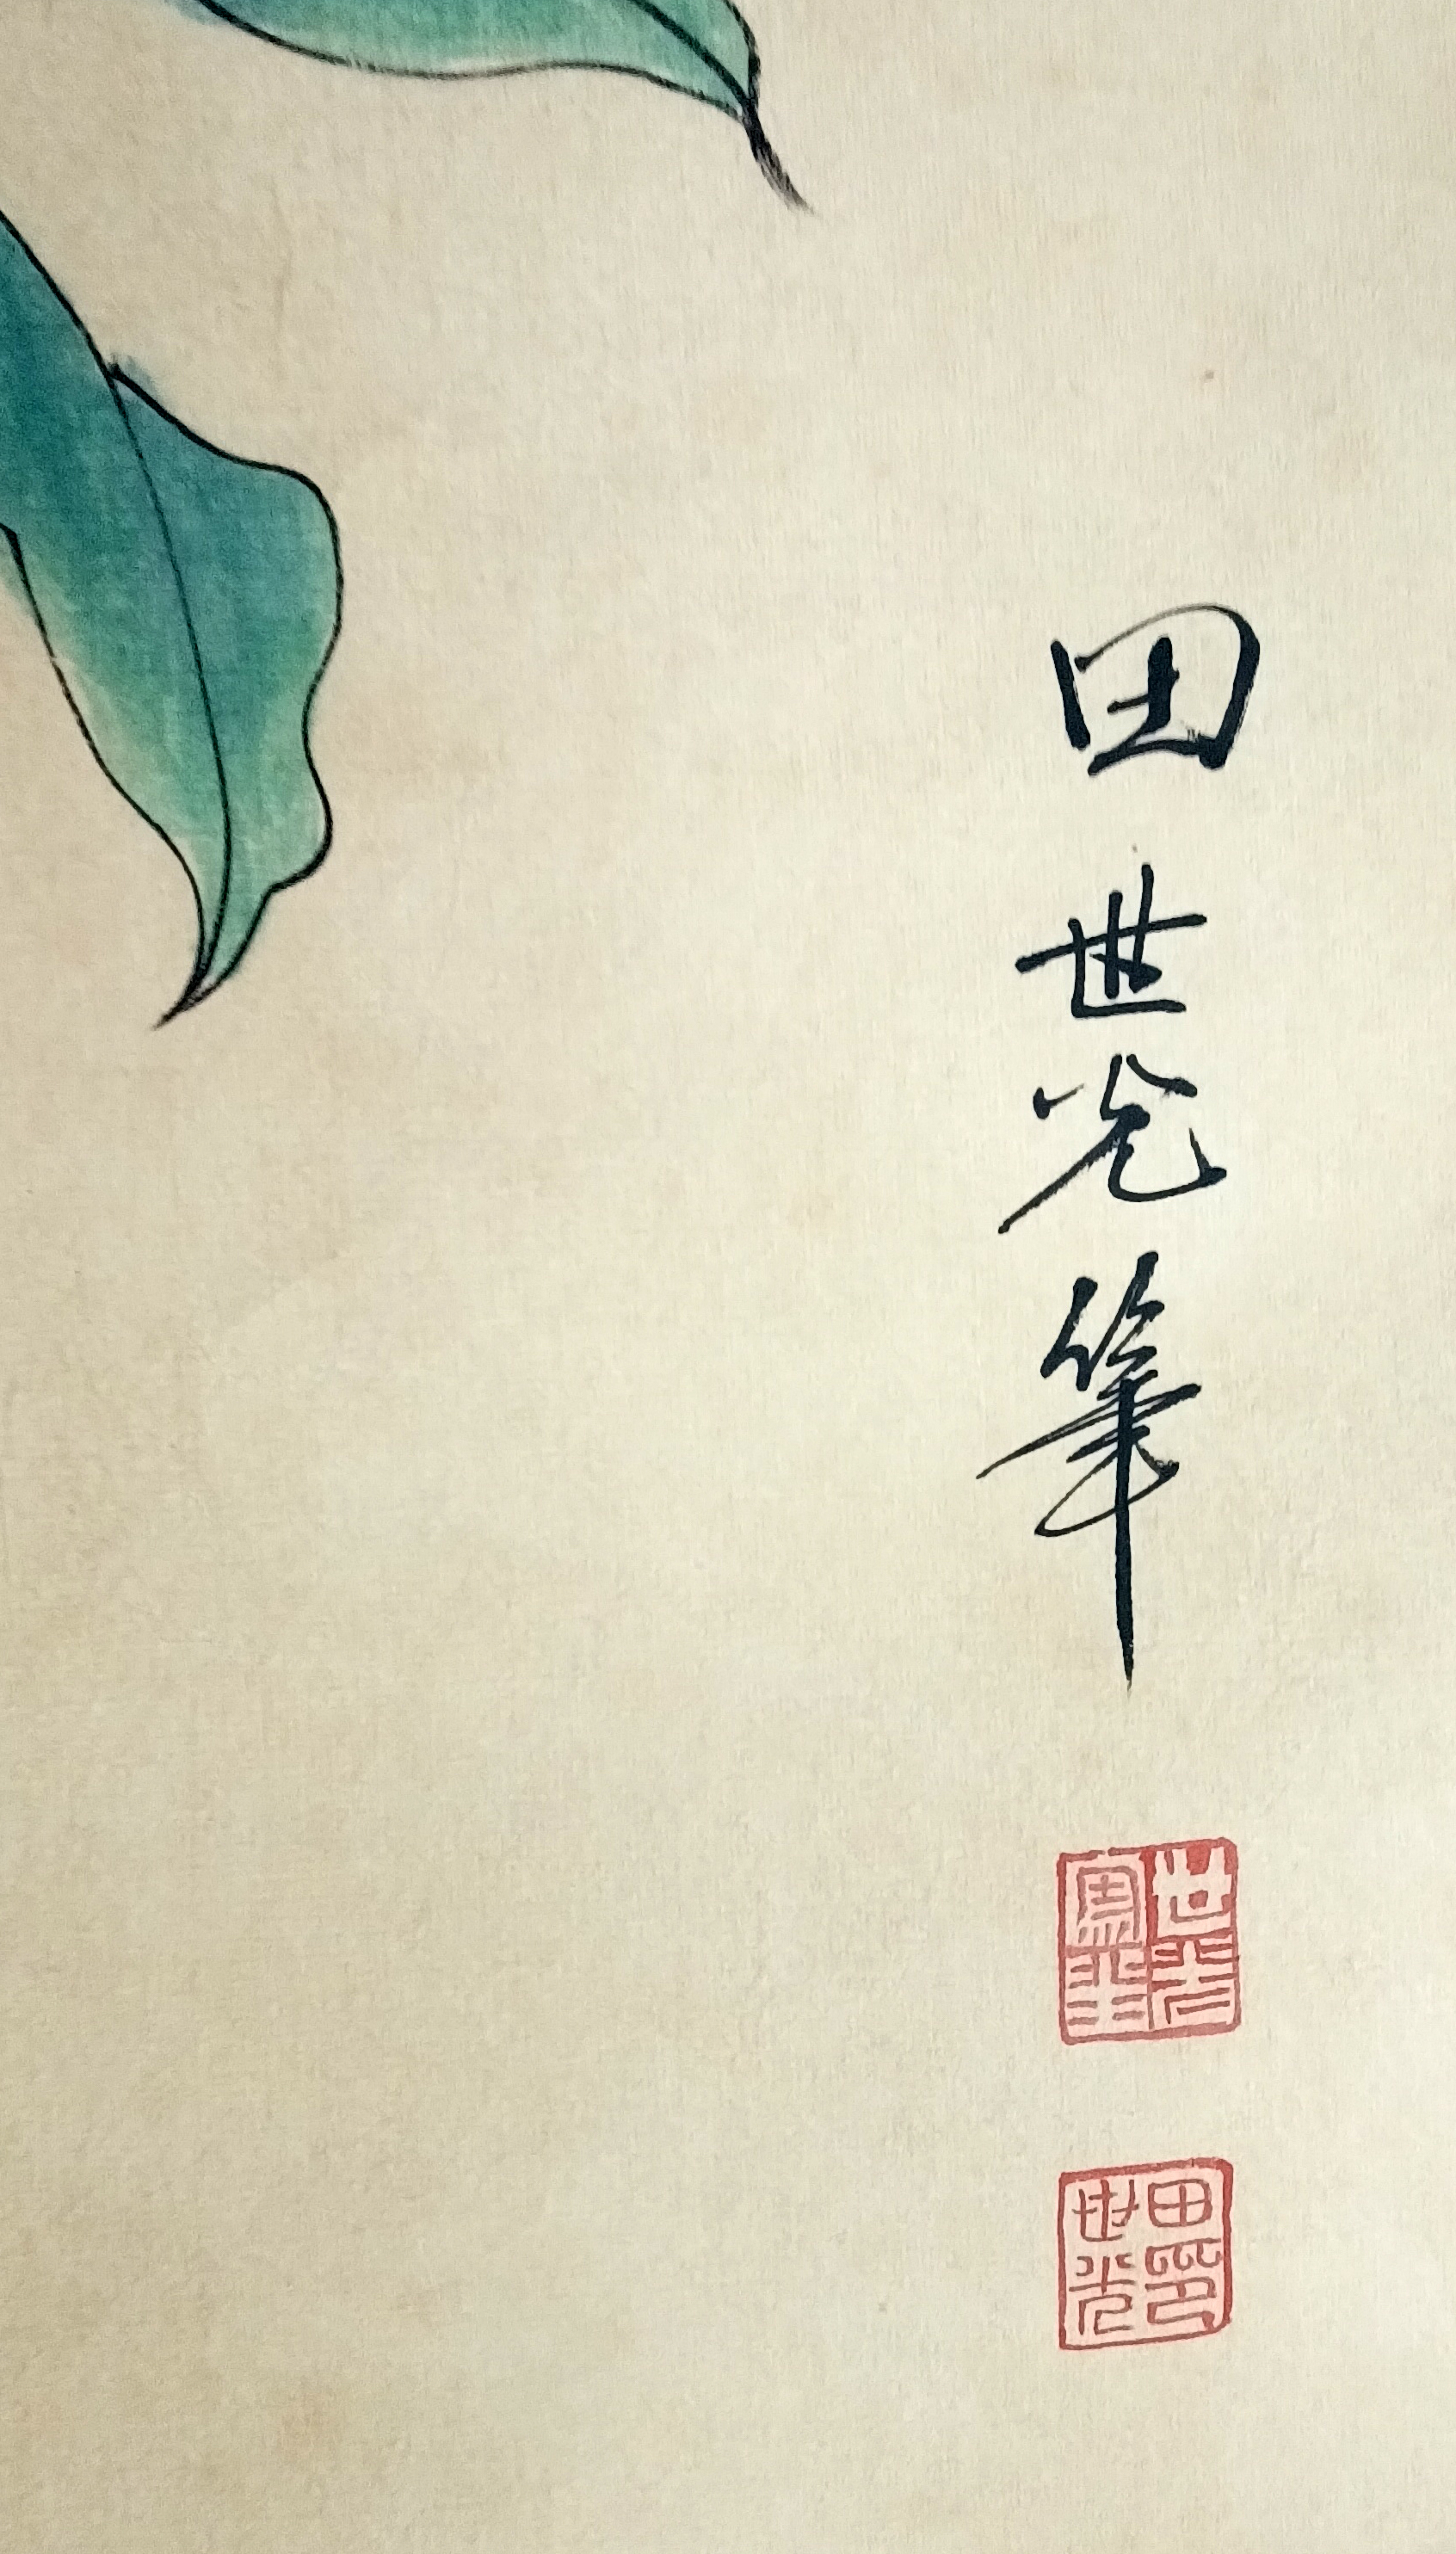 田世光筆
世光寫生
田世光印